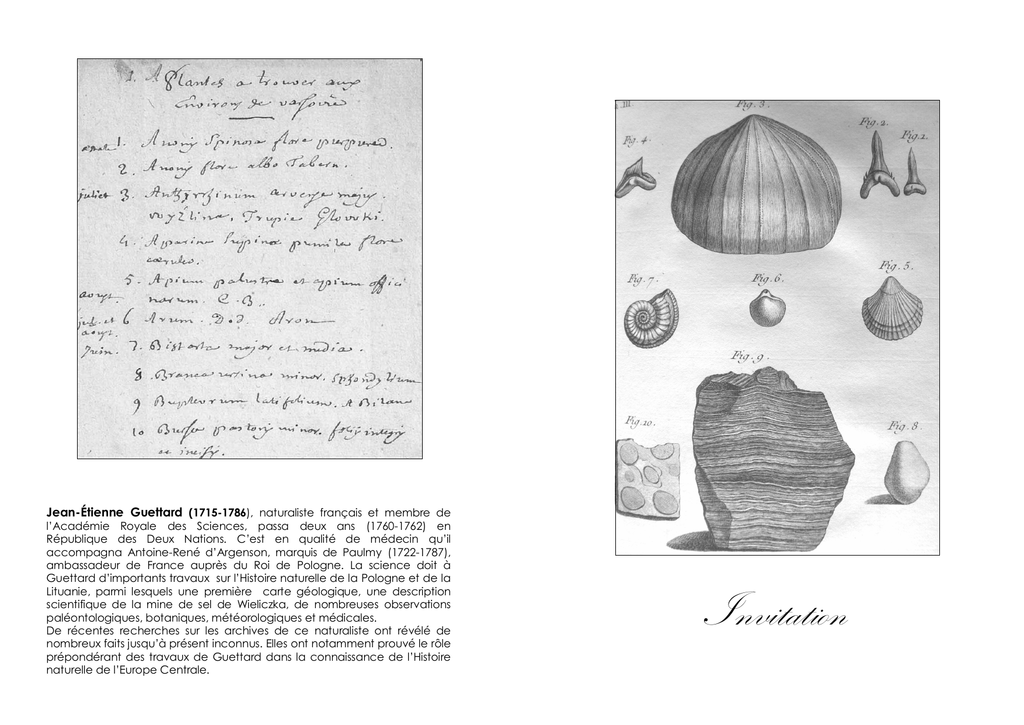 1. A Plantes a trouver aux
Environs de
1. Anonis Spinosa flore purpureo.
2. Anonis flore albo Tabern.
juliet 3. Antirrhinum arvense majus.
4. Aparine supina pumila flore
coeruleo.
aoust. 5. Apium palustre et apium offici
narum. C. B.
juil. et 6. Arum. Dod. Aron
aoust.
Juin. 7. Bistorta major et media.
8. Branca ursina minor. Sphondylium
9 Bupleurum latifolium. A
10 Bursa pastoris minor. foliis integris
Jean-Étienne Guettard (1715-1786), naturaliste français et membre de
l’Académie Royale des Sciences, passa deux ans (1760-1762) en
République des Deux Nations. C’est en qualité de médecin qu’il
accompagna Antoine-René d’Argenson, marquis de Paulmy (1722-1787),
ambassadeur de France auprès du Roi de Pologne. La science doit à
Guettard d’importants travaux sur l’Histoire naturelle de la Pologne et de la
Lituanie, parmi lesquels une première carte géologique, une description
scientifique de la mine de sel de Wieliczka, de nombreuses observations
paléontologiques, botaniques, météorologiques et médicales.
De récentes recherches sur les archives de ce naturaliste ont révélé de
nombreux faits jusqu’à présent inconnus. Elles ont notamment prouvé le rôle
prépondérant des travaux de Guettard dans la connaissance de l’Histoire
naturelle de l’Europe Centrale.
III.
Fig. 3.
Fig. 2.
Fig. 1.
Fig. 4.
Fig. 5.
Fig. 7.
Fig. 6.
Fig. 9.
Fig. 10.
Fig. 8.
Invitation